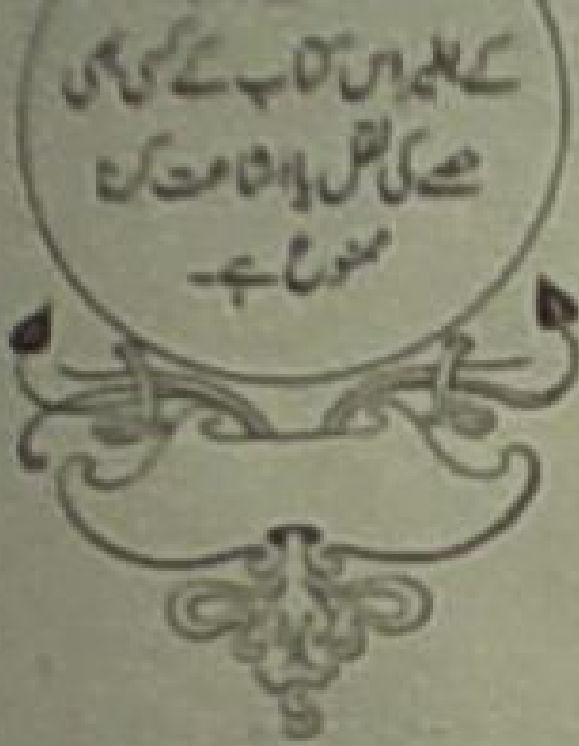 کے بغیر اس کتاب کے کسی بھی
حصے کی نقل یا اشاعت کرنا
ممنوع ہے۔